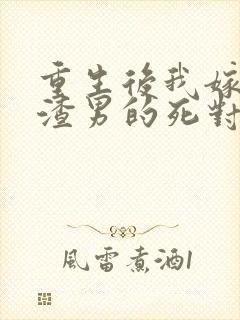 重生後我嫁
渣男的死對
風雷煮酒1